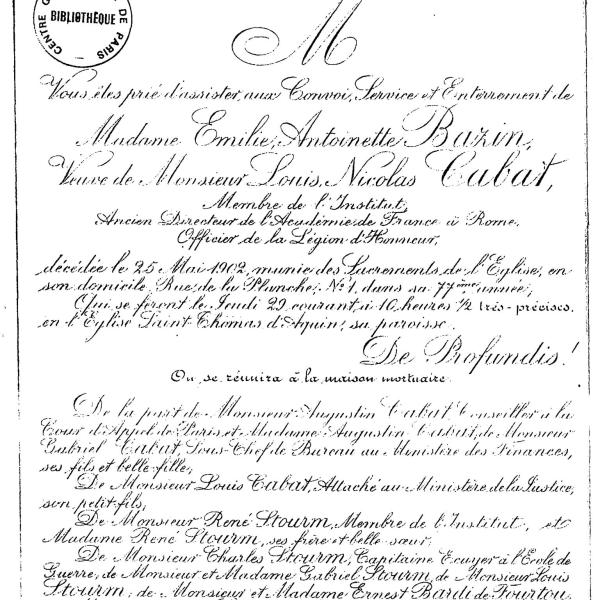 CENTRE G DE PARIS
BIBLIOTHÈQUE
M
Vous êtes prié d'assister aux Convoi, Service et Enterrement de
Madame Emilie, Antoinette Bazin,
Veuve de Monsieur Louis, Nicolas Cabat,
Membre de l'Institut,
Ancien Directeur de l'Académie de France à Rome,
Officier de la Légion d'Honneur,
décédée le 25 Mai 1902, munie des Sacrements de l'Eglise, en
son domicile, Rue de la Planche, No 1, dans sa 77ème année;
Qui se feront le Jeudi 29 courant à 10 heures 1/2 très-précises,
en l'Eglise Saint-Thomas d'Aquin, sa paroisse.
De Profundis!
On se réunira à la maison mortuaire.
De la part de Monsieur Augustin Cabat Conseiller à la
Cour d'Appel de Paris et Madame Augustin Cabat, de Monsieur
Gabriel Cabat, Sous-Chef de Bureau au Ministère des Finances,
ses fils et belle-fille;
De Monsieur Louis Cabat, Attaché au Ministère de la Justice,
son petit-fils;
De Monsieur René Stourm, Membre de l'Institut, et
Madame René Stourm, ses frère et belle sœur;
De Monsieur Charles Stourm, Capitaine Ecuyer à l'Ecole de
Guerre, de Monsieur et Madame Gabriel Stourm, de Monsieur Louis
Stourm, de Monsieur et Madame Ernest Bardi de Fourtou,